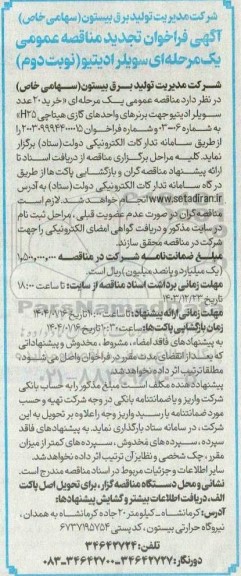 شرکت مدیریت تولید برق بیستون (سهامی خاص)
آگهی فراخوان تجدید مناقصه عمومی
یک مرحله‌ای سویلر ادیتیو (نوبت دوم)
شرکت مدیریت تولید برق بیستون (سهامی خاص)
در نظر دارد مناقصه عمومی یک مرحله‌ای «خرید ۲۰ عدد
سویلر ادیتیو جهت برنرهای واحدهای گازی هیتاچی H25»
به شماره ۰۳-۰۰۰۶ و شماره فراخوان ۲۰۰۳۰۰۹۹۹۴۴۰۰۰۰۱۵
از طریق سامانه تدارکات الکترونیکی دولت (ستاد) برگزار
نماید. کلیه مراحل برگزاری مناقصه از دریافت اسناد تا
ارائه پیشنهاد مناقصه گران و بازگشایی پاکت‌ها از طریق
درگاه سامانه تدارکات الکترونیکی دولت (ستاد) به آدرس
www.setadiran.ir انجام خواهد شد. لازم است
مناقصه گران در صورت عدم عضویت قبلی، مراحل ثبت نام
در سایت مذکور و دریافت گواهی امضای الکترونیکی را جهت
شرکت در مناقصه محقق سازند.
مبلغ ضمانت‌نامه شرکت در مناقصه ۱,۵۰۰,۰۰۰,۰۰۰
(یک میلیارد و پانصد میلیون) ریال است.
مهلت زمانی برداشت اسناد مناقصه از سایت: تا ساعت ۱۸:۰۰
تاریخ ۱۴۰۳/۱۲/۲۳
مهلت زمانی ارائه پیشنهاد: تا ساعت ۱۰:۰۰ تاریخ ۱۴۰۴/۰۱/۱۶
زمان بازگشایی پاکت‌ها: ساعت ۱۰:۳۰ تاریخ ۱۴۰۴/۰۱/۱۶
به پیشنهادهای فاقد امضاء، مشروط، مخدوش و پیشنهاداتی
که بعد از انقضای مدت مقرر در فراخوان واصل می شود
مطلقا ترتیب اثر داده نخواهد شد.
پیشنهاد دهنده مکلف است مبلغ مذکور را به حساب بانکی
شرکت واریز و یا ضمانتنامه بانکی در وجه شرکت تهیه و حسب
مورد ضمانتنامه یا رسید واریز وجه را علاوه بر تحویل به این
شرکت، در سامانه ستاد بارگذاری نماید. به پیشنهادهای فاقد
سپرده، سپرده‌های مخدوش، سپرده‌های کمتر از میزان
مقرر، چک شخصی و نظایر آن ترتیب اثر داده نخواهد شد.
سایر اطلاعات و جزئیات مربوط در اسناد مناقصه مندرج است.
نشانی و محل دستگاه مناقصه گزار، برای تحویل اصل پاکت
الف، دریافت اطلاعات بیشتر و گشایش پیشنهادها:
آدرس: کرمانشاه - کیلومتر ۲۰ جاده کرمانشاه به همدان،
نیروگاه حرارتی بیستون، کد پستی ۶۷۳۷۱۹۵۷۵۴
تلفن: ۳۴۶۴۲۷۲۴
دورنگار: ۳۴۶۴۲۷۲۷-۳۴۶۴۲۷۰۰-۰۸۳